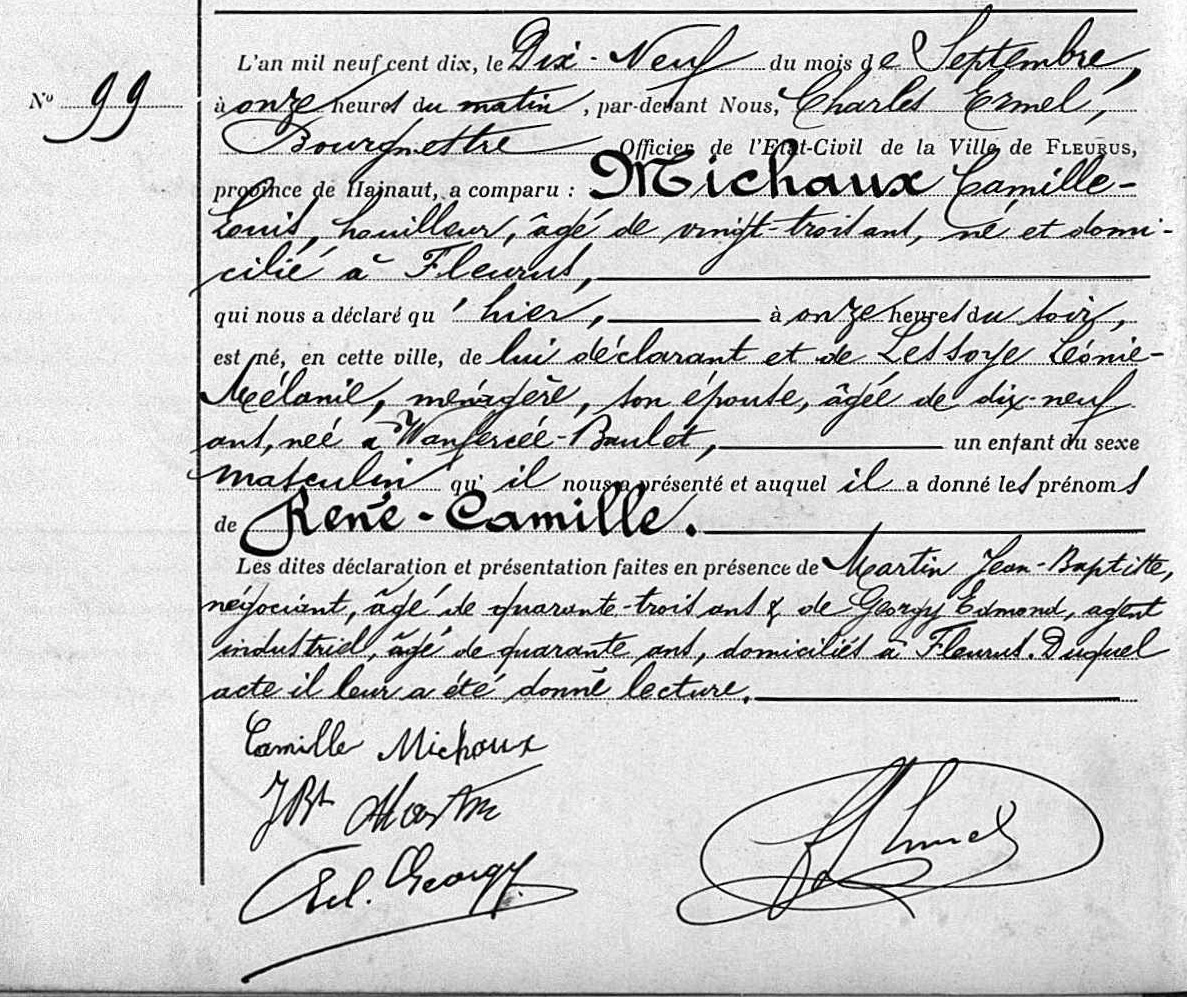 L'an mil neuf cent dix, le Dix-Neuf du mois de Septembre,
N° 99
à onze heures du matin, par-devant Nous, Charles Ermel,
Bourgmestre Officier de l'Etat-Civil de la Ville de FLEURUS,
province de Hainaut, a comparu : Michaux Camille-
Louis, houilleur, âgé de vingt-trois ans, né et domi-
cilié à Fleurus,
qui nous a déclaré qu'hier, à onze heures du soir,
est né, en cette ville, de lui déclarant et de Lessoye Léonie-
Mélanie, ménagère, son épouse, âgée de dix-neuf
ans, née à Wanfercée-Baulet, un enfant du sexe
masculin qu'il nous a présenté et auquel il a donné les prénoms
de René-Camille.
Les dites déclaration et présentation faites en présence de Martin Jean-Baptiste,
négociant, âgé de quarante-trois ans & de Georgy Edmond, agent
industriel, âgé de quarante ans, domiciliés à Fleurus. Duquel
acte il leur a été donné lecture.
Camille Michaux
JBt Martin
Ed. Georgy
Ermel